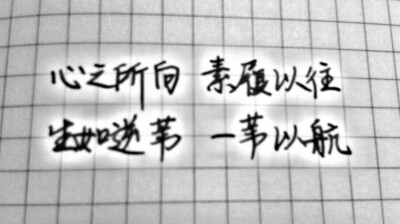 心之所向 素履以往
生如逆苇 一苇以航